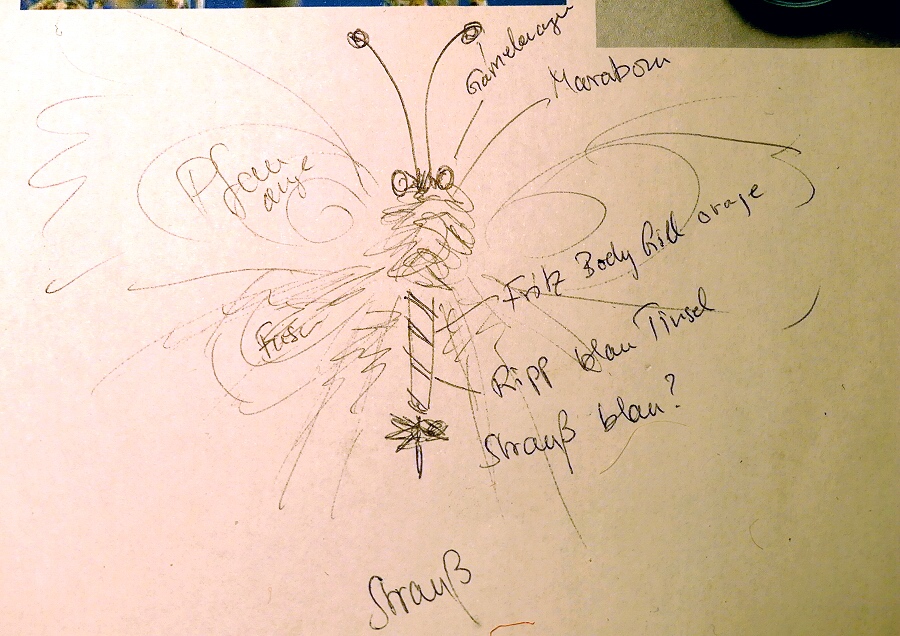 Garnelenaugen
Marabou
Pfau
auge
Fritz Body Quill orage
Faser
Ripp blau Tinsel
Strauß blau?
Strauß